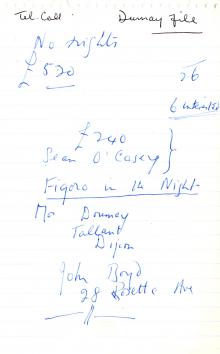 Tel. Call. Dumay File
No rights
£520 26
6 interested
£240
Sean O'Casey
Figaro in 14 Night
Mr Doumay
Tallant
Dijon
John Boyd
28 Rosetta Ave